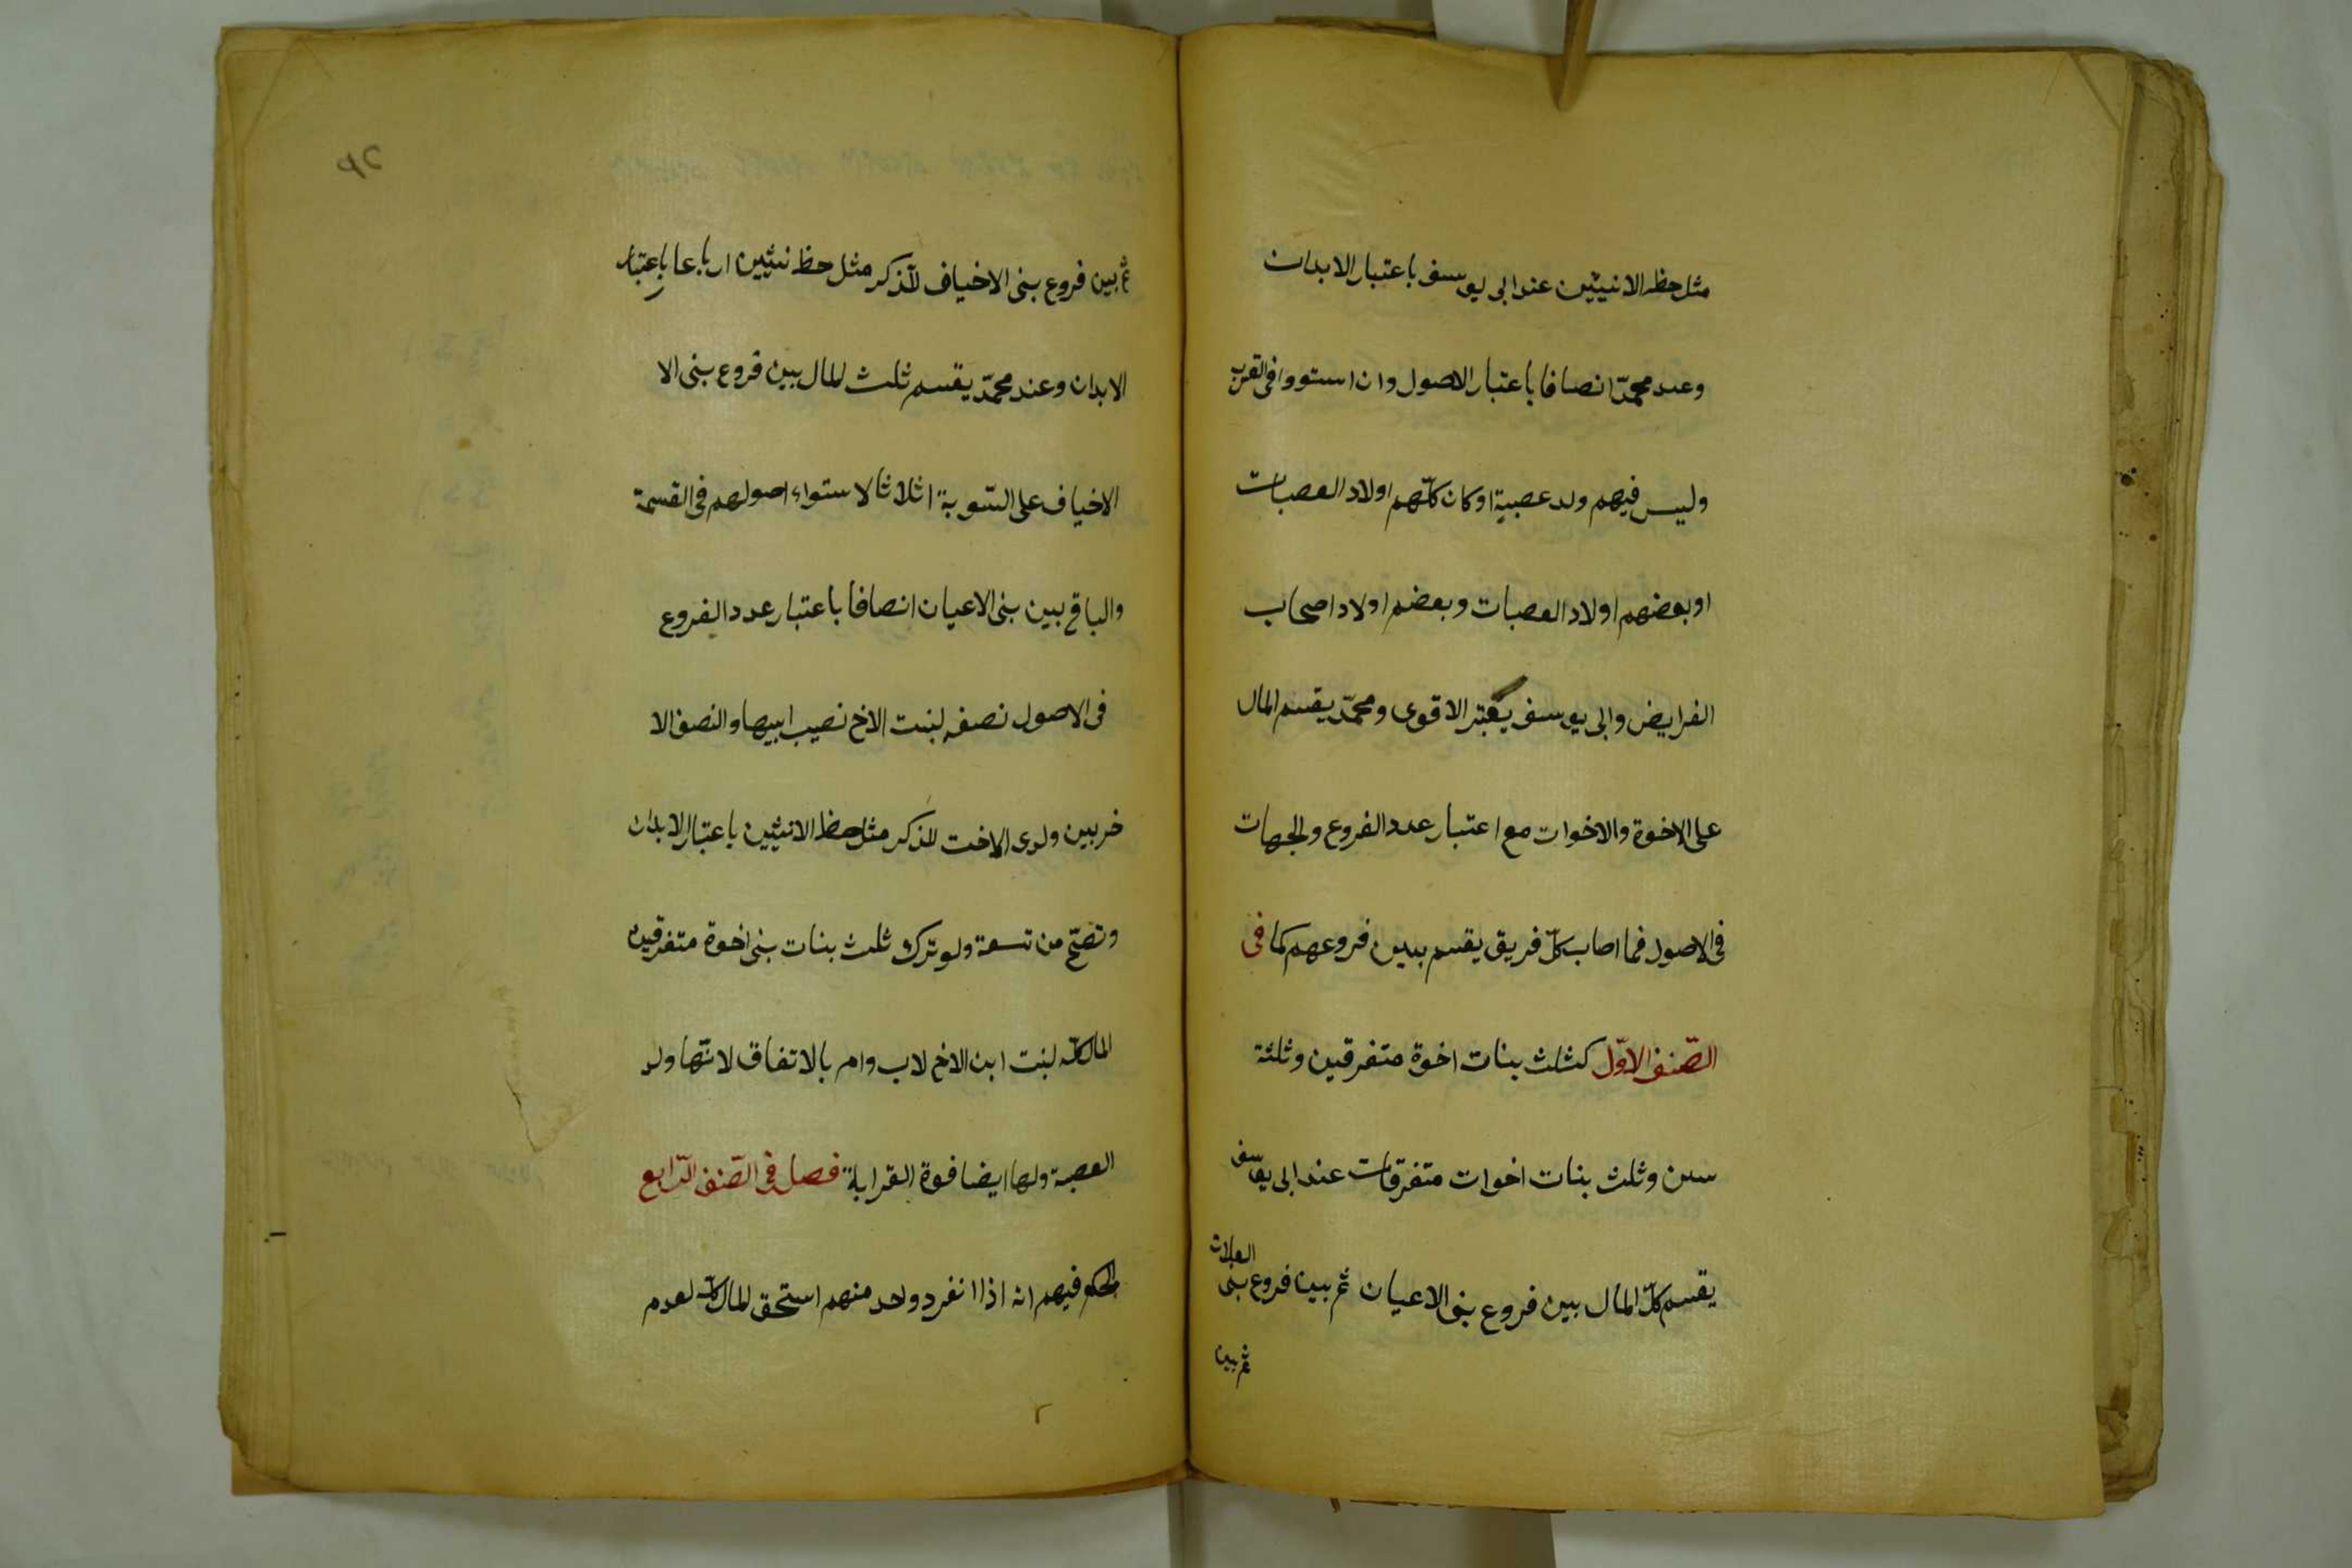 مثل حظ الانثيين عند ابى يوسف باعتبار الابدان
وعند محمّد انصافا باعتبار الاصول وان استووا فى القرب
وليس فيهم ولد عصبية اوكان كلّهم اولاد العصبات
اوبعضهم اولاد العصبات وبعضهم اولاد اصحاب
الفرايض وابى يوسف يعتبر الاقوى ومحمّد يقسم المال
على الاخوة والاخوات مع اعتبار عدد الفروع والجهات
فى الاصول فما اصاب كلّ فريق يقسم بين فروعهم كما فى
الصّنف الاوّل كثلث بنات اخوة متفرقين وثلثة
بنين وثلث بنات اخوات متفرّقات عند ابى يوسف
يقسم كلّ المال بين فروع بنى الاعيان ثم بين فروع بنى العلات
ثم بين
٩٢
ثم بين فروع بنى الاخياف للذكر مثل حظ نثيين ارباعا باعتبار
الابدان وعند محمّد يقسم ثلث المال بين فروع بنى الا
الاخياف على السّوية اثلاثا لاستواء اصولهم فى القسمة
والباقى بين بنى الاعيان انصافا باعتبار عدد الفروع
فى الاصول نصفه لبنت الاخ نصيب ابيها والنصف الا
خر بين ولدى الاخت للذكر مثل حظ الانثيين باعتبار الابدان
وتصحّ من تسعة ولو ترك ثلث بنات بنى اخوة متفرقين
المال كله لبنت ابن الاخ لاب وام بالاتفاق لانّها ولد
العصبة ولها ايضا قوة القرابة فصل فى الصّنف الرّابع
الحكم فيهم انه اذا انفرد واحد منهم استحق المال كله لعدم